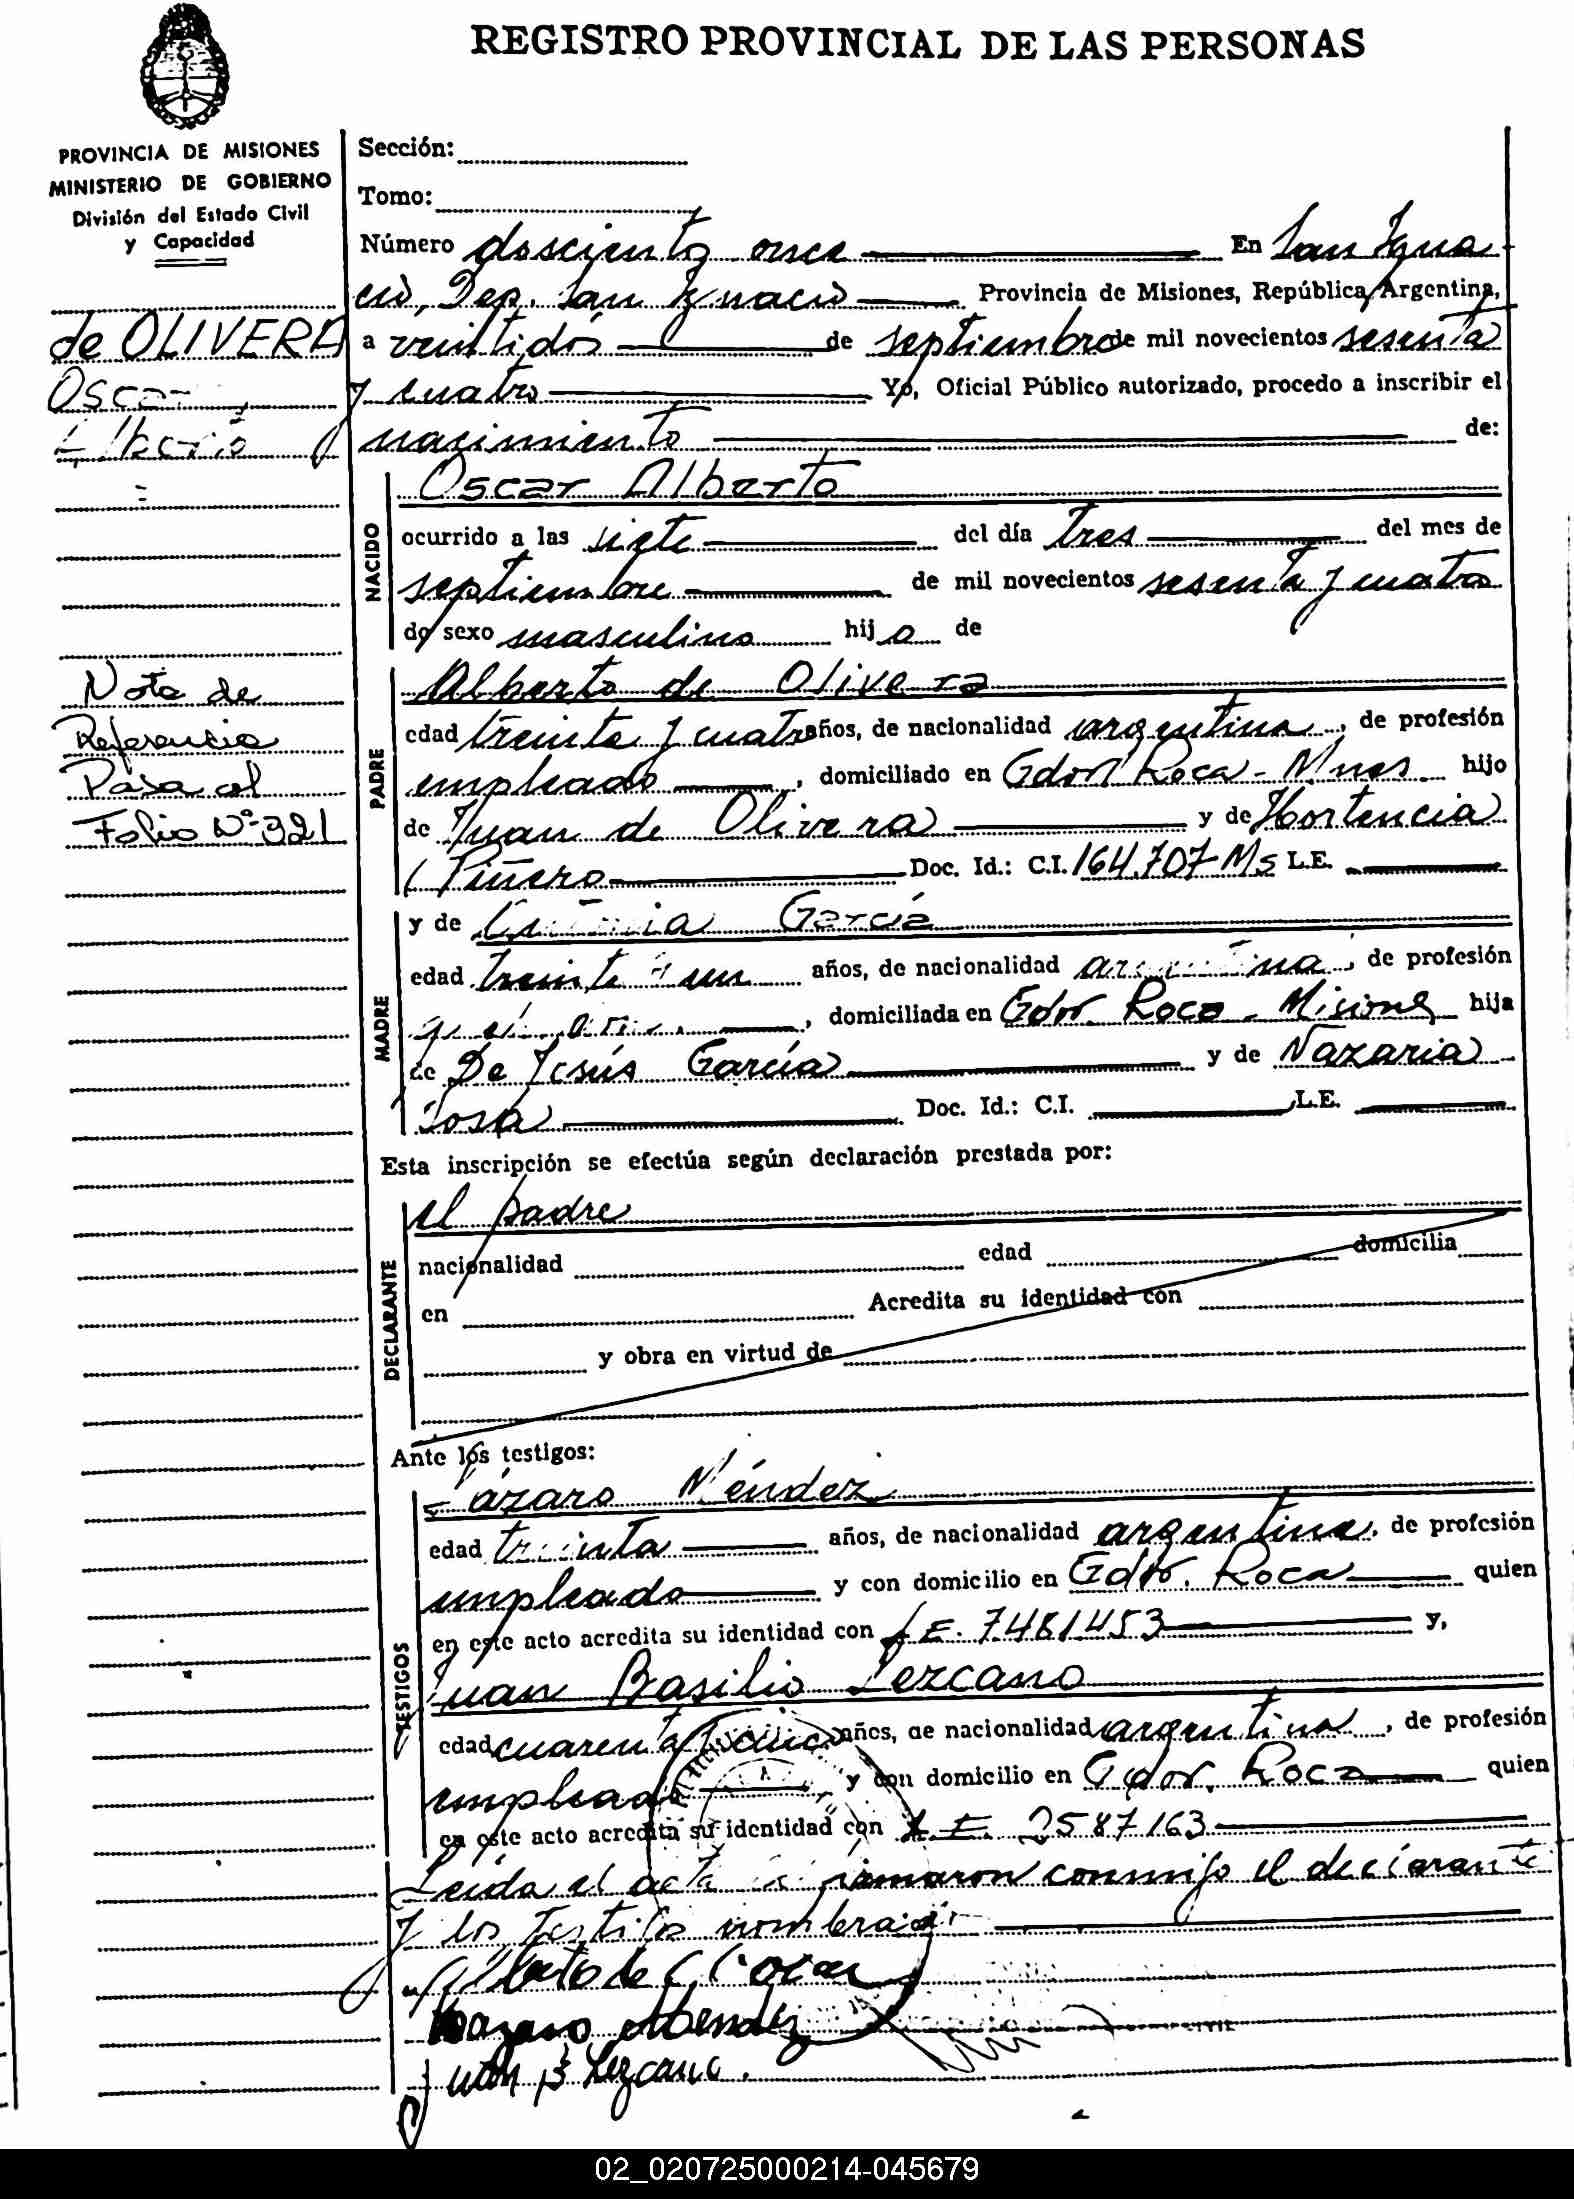 REGISTRO PROVINCIAL DE LAS PERSONAS
PROVINCIA DE MISIONES
MINISTERIO DE GOBIERNO
División del Estado Civil
y Capacidad
de OLIVERA
Oscar
Alberto
Nota de
Referencia
Pasa al
Folio Nº 321
Sección:
Tomo:
Número doscientos once En San Igna-
cio, Dep. San Ignacio Provincia de Misiones, República Argentina,
a veintidós de septiembre de mil novecientos sesenta
y cuatro Yo, Oficial Público autorizado, procedo a inscribir el
nacimiento de:
NACIDO
Oscar Alberto
ocurrido a las siete del día tres del mes de
septiembre de mil novecientos sesenta y cuatro
de sexo masculino hijo de
PADRE
Alberto de Olivera
edad treinta y cuatro años, de nacionalidad argentina, de profesión
empleado, domiciliado en Gdor. Roca - Mnes. hijo
de Juan de Olivera y de Hortencia
Piñero Doc. Id.: C.I. 164.707 Ms L.E.
MADRE
y de García
edad treinta y un años, de nacionalidad argentina, de profesión
, domiciliada en Gdor. Roca - Misiones hija
de De Jesús García y de Nazaria
Sosa Doc. Id.: C.I. L.E.
Esta inscripción se efectúa según declaración prestada por:
DECLARANTE
el padre
nacionalidad edad domicilia
en Acredita su identidad con
y obra en virtud de
Ante los testigos:
TESTIGOS
Lázaro Méndez
edad treinta años, de nacionalidad argentina, de profesión
empleado y con domicilio en Gdor. Roca quien
en este acto acredita su identidad con L.E. 7481453 y,
Juan Basilio Lezcano
edad cuarenta y cinco años, de nacionalidad argentina, de profesión
empleado y con domicilio en Gdor. Roca quien
en este acto acredita su identidad con L.E. 2587163
Leída el acta firmaron conmigo el declarante
y los testigos nombrados
Alberto de Olivera
Lazaro Mendez
Juan B Lezcano.
02_020725000214-045679